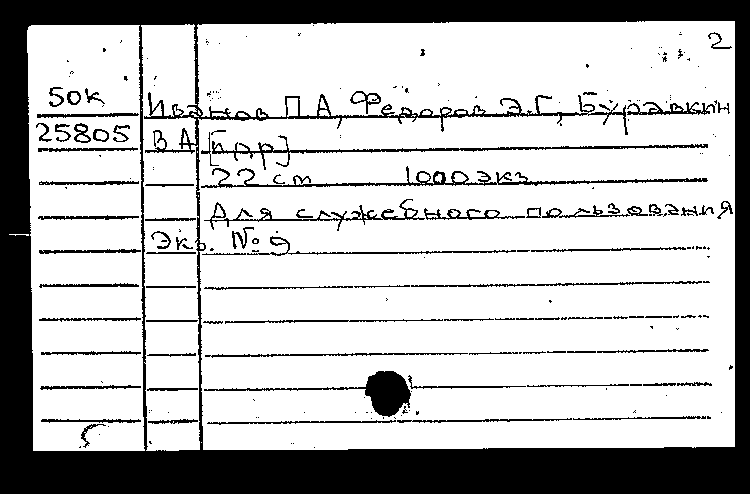 2
50к Иванов П А, Федоров Э.Г., Буравкин
25805 В А [и др]
22 см 1000 экз
Для служебного пользования
Экз. № 9